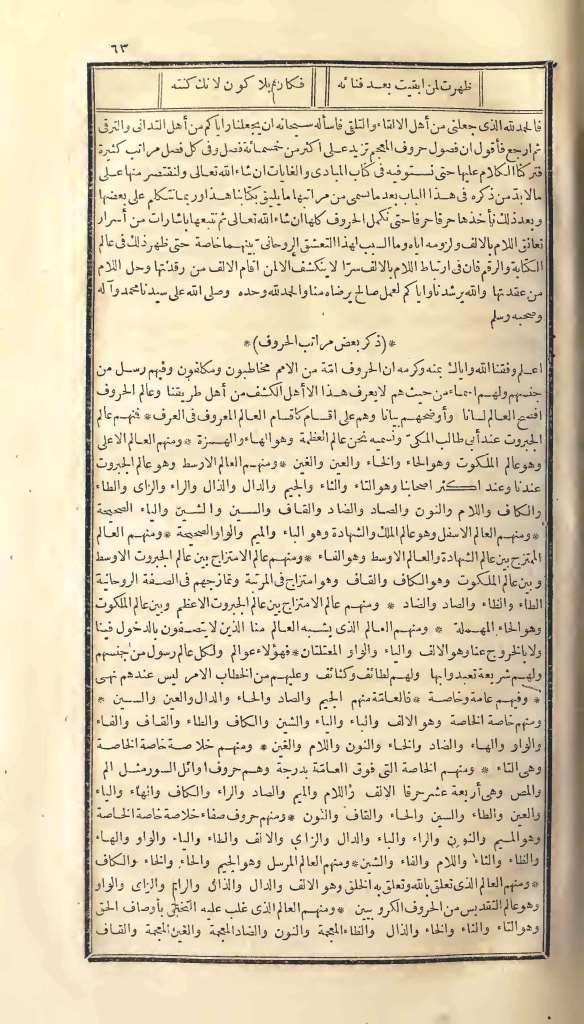 ٦٣
ظهرت لمن ابقيت بعد فنائه فكان بلا كون لانك كنته
فالحمد لله الذى جعلنى من أهل الالقاء والتلقى فاسأله سبحانه ان يجعلنا واياكم من أهل التدانى والترقى
ثم ارجع فأقول ان فصول حروف المعجم تزيد على اكثر من خمسمائة فصل وفى كل فصل مراتب كثيرة
فتركنا الكلام عليها حتى نستوفيه فى كتاب المبادى والغايات ان شاء الله تعالى ولنقتصر منها على
مالابد من ذكره فى هذا الباب بعد ما نسمى من مراتبها ما يليق بكتابنا هذا وربما نتكلم على بعضها
وبعد ذلك نأخذها حرفا حرفا حتى تكمل الحروف كلها ان شاء الله تعالى ثم نتبعها باشارات من أسرار
تعانق اللام بالالف ولزومه اياه وما السبب لهذا التعشق الروحانى بينهما خاصة حتى ظهر ذلك فى عالم
الكتابة والرقم فان فى ارتباط اللام بالالف سرا لا ينكشف الا لمن اقام الالف من رقدتها وحل اللام
من عقدتها والله يرشدنا واياكم لعمل صالح يرضاه منا والحمد لله وحده وصلى الله على سيدنا محمد وآله
وصحبه وسلم
*(ذكر بعض مراتب الحروف)*
اعلم وفقنا الله واياك بمنه وكرمه ان الحروف امة من الامم مخاطبون ومكلفون وفيهم رسل من
جنسهم ولهم اسماء من حيث هم لا يعرف هذا الا أهل الكشف من أهل طريقنا وعالم الحروف
افصح العالم لسانا وأوضحهم بيانا وهم على اقسام كاقسام العالم المعروف فى العرف * فمنهم عالم
الجبروت عند أبى طالب المكى ونسميه نحن عالم العظمة وهو الهاء والهمزة * ومنهم العالم الاعلى
وهو عالم الملكوت وهو الحاء والخاء والعين والغين * ومنهم العالم الاوسط وهو عالم الجبروت
عندنا وعند اكثر اصحابنا وهو التاء والثاء والجيم والدال والذال والراء والزاى والظاء
والكاف واللام والنون والصاد والضاد والقاف والسين والشين والياء الصحيحة
* ومنهم العالم الاسفل وهو عالم الملك والشهادة وهو الباء والميم والواو الصحيحة * ومنهم العالم
الممتزج بين عالم الشهادة والعالم الاوسط وهو الفاء * ومنهم عالم الامتزاج بين عالم الجبروت الاوسط
وبين عالم الملكوت وهو الكاف والقاف وهو امتزاج فى المرتبة وتمازجهم فى الصفة الروحانية
الطاء والظاء والصاد والضاد * ومنهم عالم الامتزاج بين عالم الجبروت الاعظم وبين عالم الملكوت
وهو الحاء المهملة * ومنهم العالم الذى يشبه العالم منا الذين لا يتصفون بالدخول فينا
ولا بالخروج عنا وهو الالف والياء والواو المعتلتان * فهؤلاء عوالم ولكل عالم رسول من جنسهم
ولهم شريعة تعبدوا بها ولهم لطائف وكثائف وعليهم من الخطاب الامر ليس عندهم نهى
* وفيهم عامة وخاصة * فالعامة منهم الجيم والضاد والخاء والدال والغين والشين *
ومنهم خاصة الخاصة وهو الالف والباء والياء والسين والكاف والطاء والقاف والفاء
والواو والهاء والصاد والحاء والنون واللام والغين * ومنهم خلاصة خاصة الخاصة
وهى الباء * ومنهم الخاصة التى فوق العامة بدرجة وهم حروف اوائل السور مثل الم
والمص وهى أربعة عشر حرفا الالف واللام والميم والصاد والراء والكاف والهاء والياء
والعين والطاء والسين والحاء والقاف والنون * ومنهم حروف صفاء خلاصة خاصة الخاصة
وهو الميم والنون والراء والباء والدال والزاى والالف والطاء والياء والواو والهاء
والظاء والثاء واللام والفاء والشين * ومنهم العالم المرسل وهو الجيم والحاء والخاء والكاف
* ومنهم العالم الذى تعلق بالله وتعلق به الخلق وهو الالف والدال والذال والراء والزاى والواو
وهو عالم التقديس من الحروف الكروبيين * ومنهم العالم الذى غلب عليه التخلق بأوصاف الحق
وهو التاء والثاء والحاء والذال والظاء المعجمة والنون والضاد المعجمة والغين المعجمة والقاف